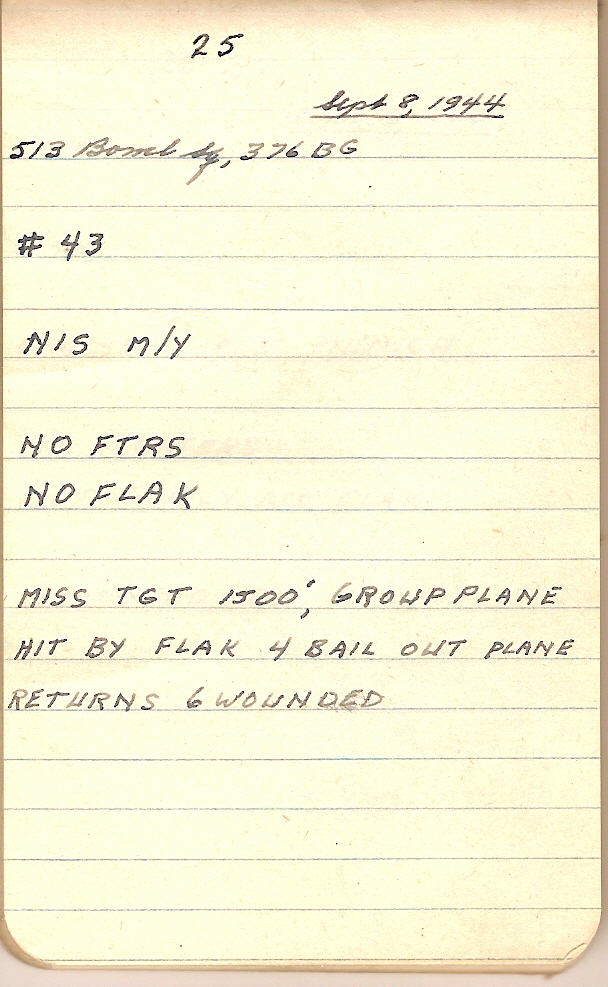 25
Sept 8, 1944
513 Bomb Sq, 376 BG
# 43
NIS M/Y
NO FTRS
NO FLAK
MISS TGT 1500', GROUP PLANE
HIT BY FLAK 4 BAIL OUT PLANE
RETURNS 6 WOUNDED